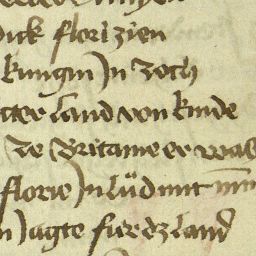 dick florizien
kungin) jn zoch
tter land von kinde
ze Britanie er was
florie) jn lúd mit
n) agte für dz land